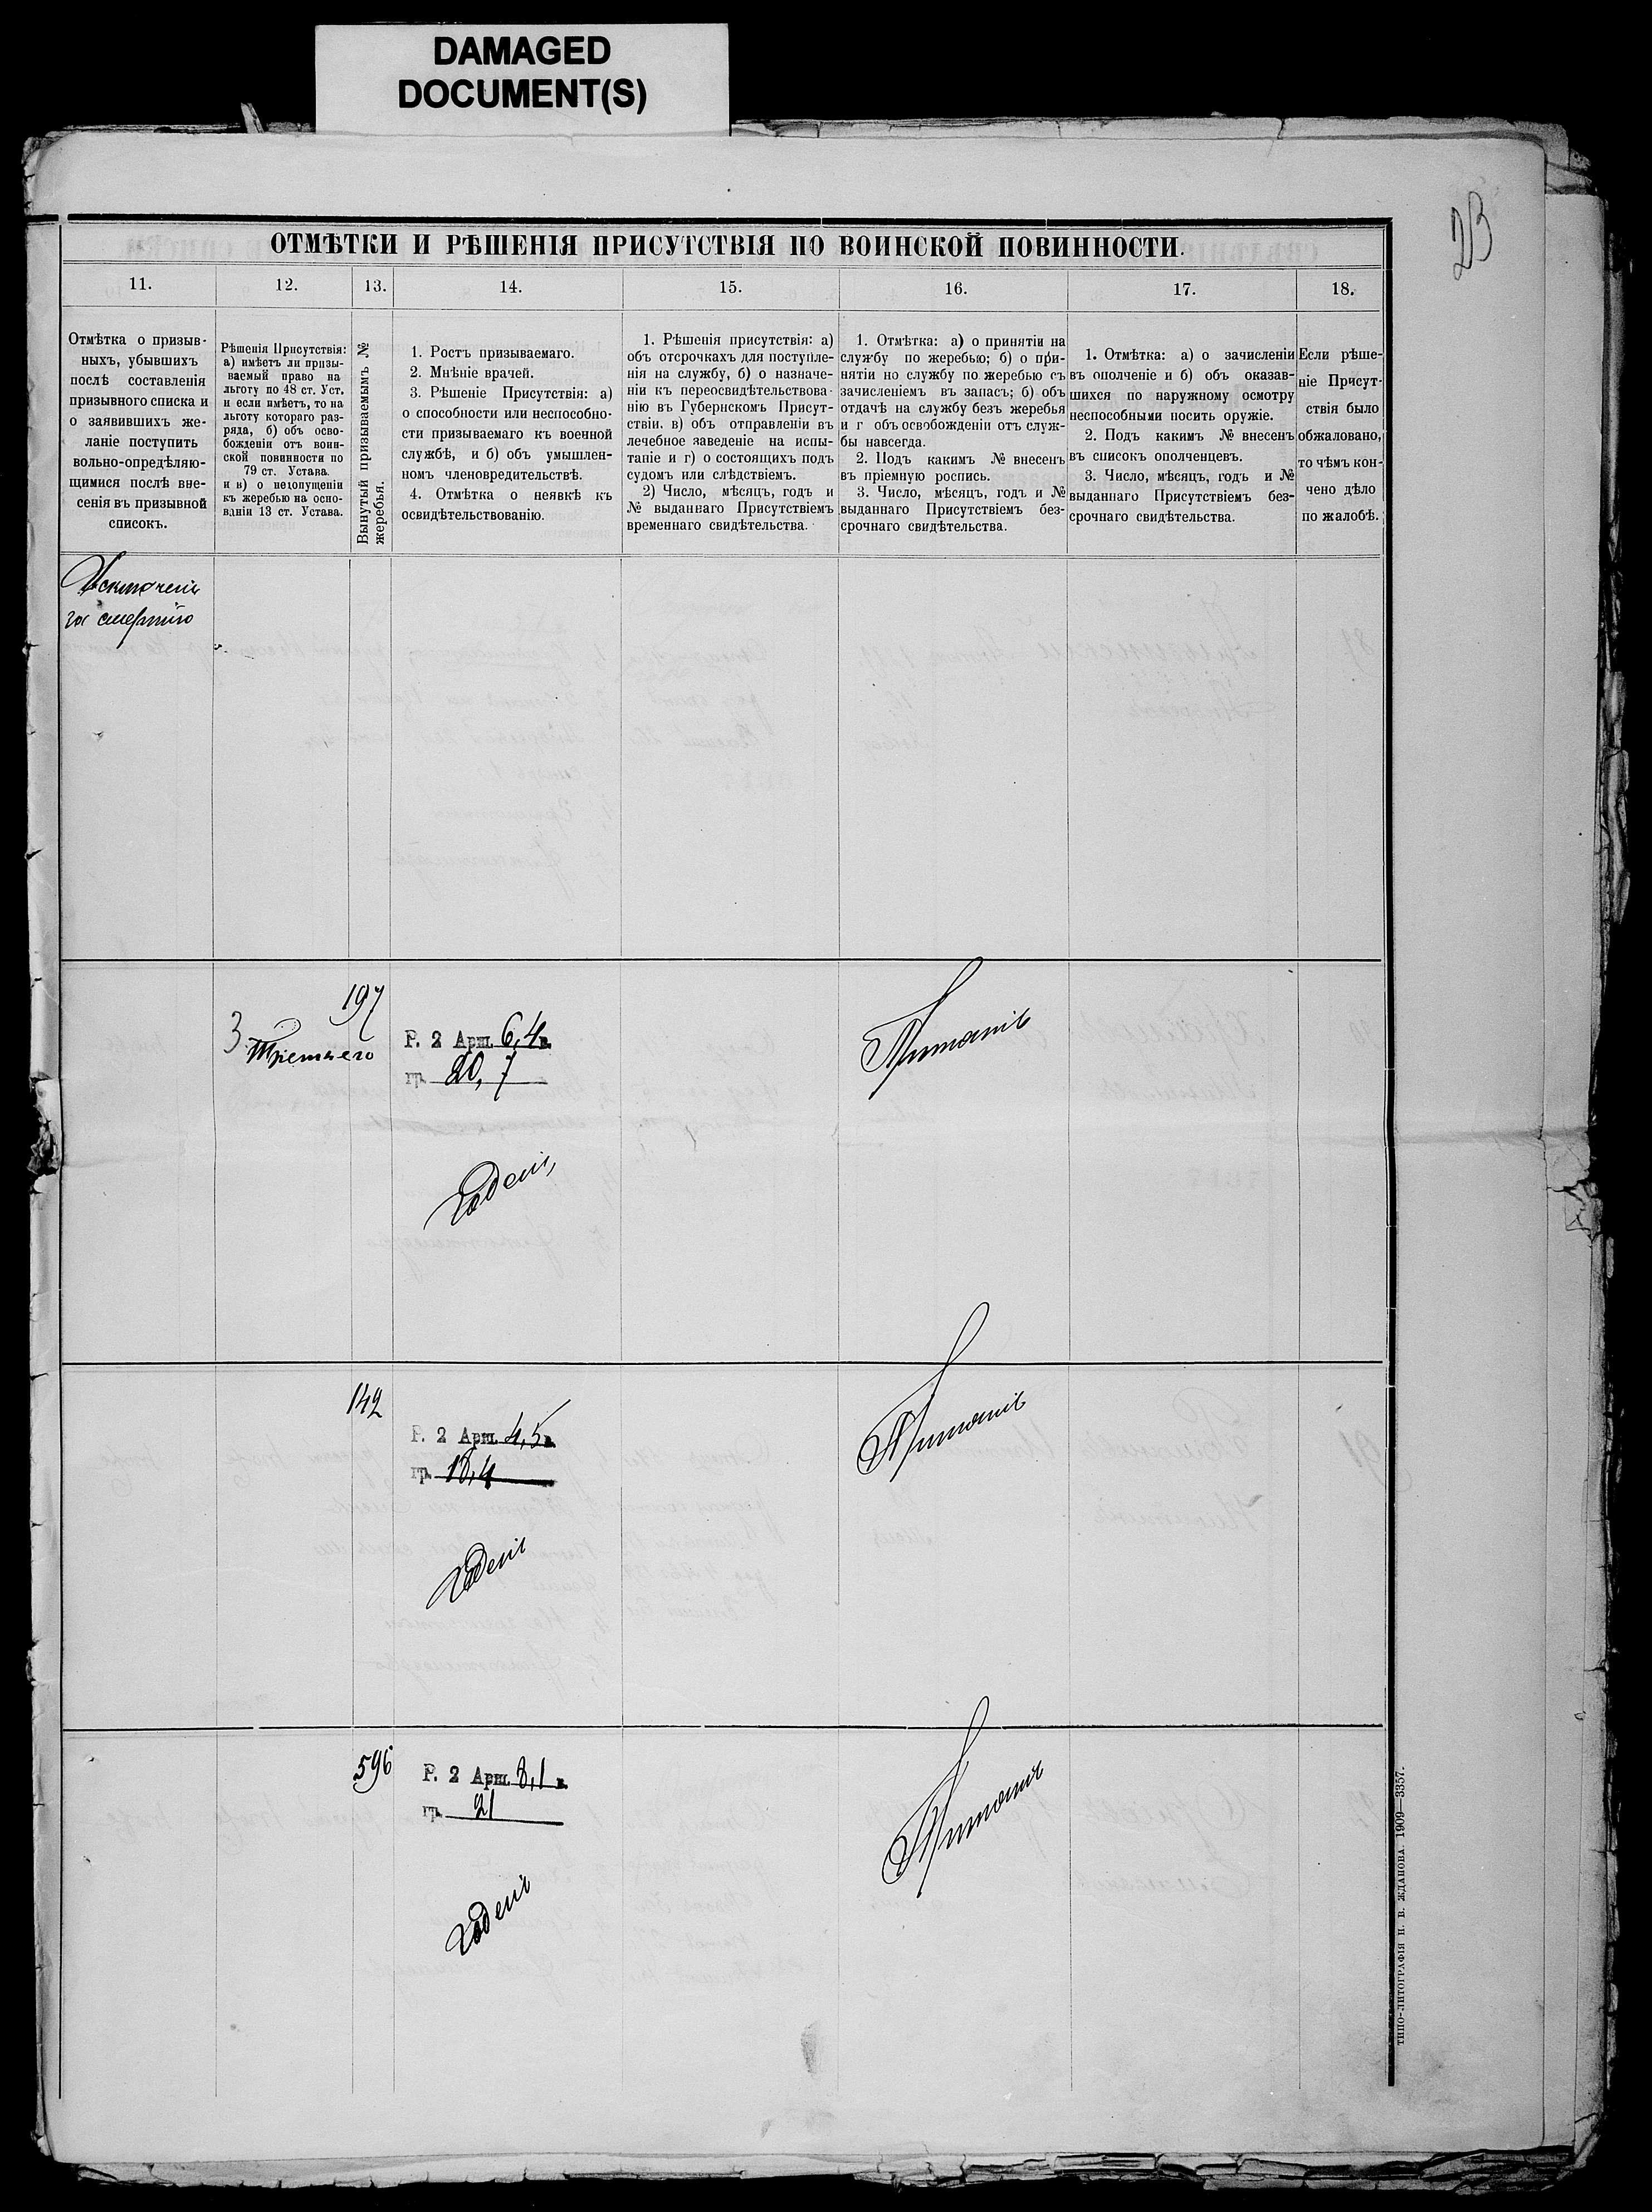 DAMAGED
DOCUMENT(S)
23
ОТМѢТКИ И РѢШЕНІЯ ПРИСУТСТВІЯ ПО ВОИНСКОЙ ПОВИННОСТИ.
11. 12. 13. 14. 15. 16. 17. 18.
Отмѣтка о призыв-
ныхъ, убывшихъ
послѣ составленія
призывного списка и
о заявившихъ же-
ланіе поступить
вольно-опредѣляю-
щимися послѣ вне-
сенія въ призывной
списокъ.
Рѣшенія Присутствія:
а) имѣетъ ли призы-
ваемый право на
льготу по 48 ст. Уст.
и если имѣетъ, то на
льготу котораго раз-
ряда, б) объ осво-
божденіи отъ воин-
ской повинности по
79 ст. Устава.
и в) о недопущеніи
къ жеребью на осно-
ваніи 13 ст. Устава.
Вынутый призываемымъ №
жеребья.
1. Ростъ призываемаго.
2. Мнѣніе врачей.
3. Рѣшеніе Присутствія: а)
о способности или неспособно-
сти призываемаго къ военной
службѣ, и б) объ умышлен-
номъ членовредительствѣ.
4. Отмѣтка о неявкѣ къ
освидѣтельствованію.
1. Рѣшенія присутствія: а)
объ отсрочкахъ для поступле-
нія на службу, б) о назначе-
ніи къ переосвидѣтельствова-
нію въ Губернскомъ Присут-
ствіи. в) объ отправленіи въ
лечебное заведеніе на испы-
таніе и г) о состоящихъ подъ
судомъ или слѣдствіемъ.
2) Число, мѣсяцъ, годъ и
№ выданнаго Присутствіемъ
временнаго свидѣтельства.
1. Отмѣтка: а) о принятіи на
службу по жеребью; б) о при-
нятіи но службу по жеребью съ
зачисленіемъ въ запасъ; б) объ
отдачѣ на службу безъ жеребья
и г объ освобожденіи отъ служ-
бы навсегда.
2. Подъ какимъ № внесенъ
въ пріемную роспись.
3. Число, мѣсяцъ, годъ и №
выданнаго Присутствіемъ без-
срочнаго свидѣтельства.
1. Отмѣтка: а) о зачисленіи
въ ополченіе и б) объ оказав-
шихся по наружному осмотру
неспособными носить оружіе.
2. Подъ какимъ № внесенъ
въ списокъ ополченцевъ.
3. Число, мѣсяцъ, годъ и №
выданнаго Присутствіемъ без-
срочнаго свидѣтельства.
Если рѣше-
ніе Присут-
ствія было
обжаловано,
то чѣмъ кон-
чено дѣло
по жалобѣ.
Исключенъ
за смертію
197
3. Третьяго
Р. 2 Арш. 6,4 в.
гр. 20,7
Годенъ
Принятъ
142
Р. 2 Арш. 4,5 в.
гр. 18,4
Годенъ
Принятъ
596
Р. 2 Арш. 3,1 в.
гр. 21
Годенъ
Принятъ
ТИПО-ЛИТОГРАФІЯ Н. В. ЖДАНОВА. 1909—3357.